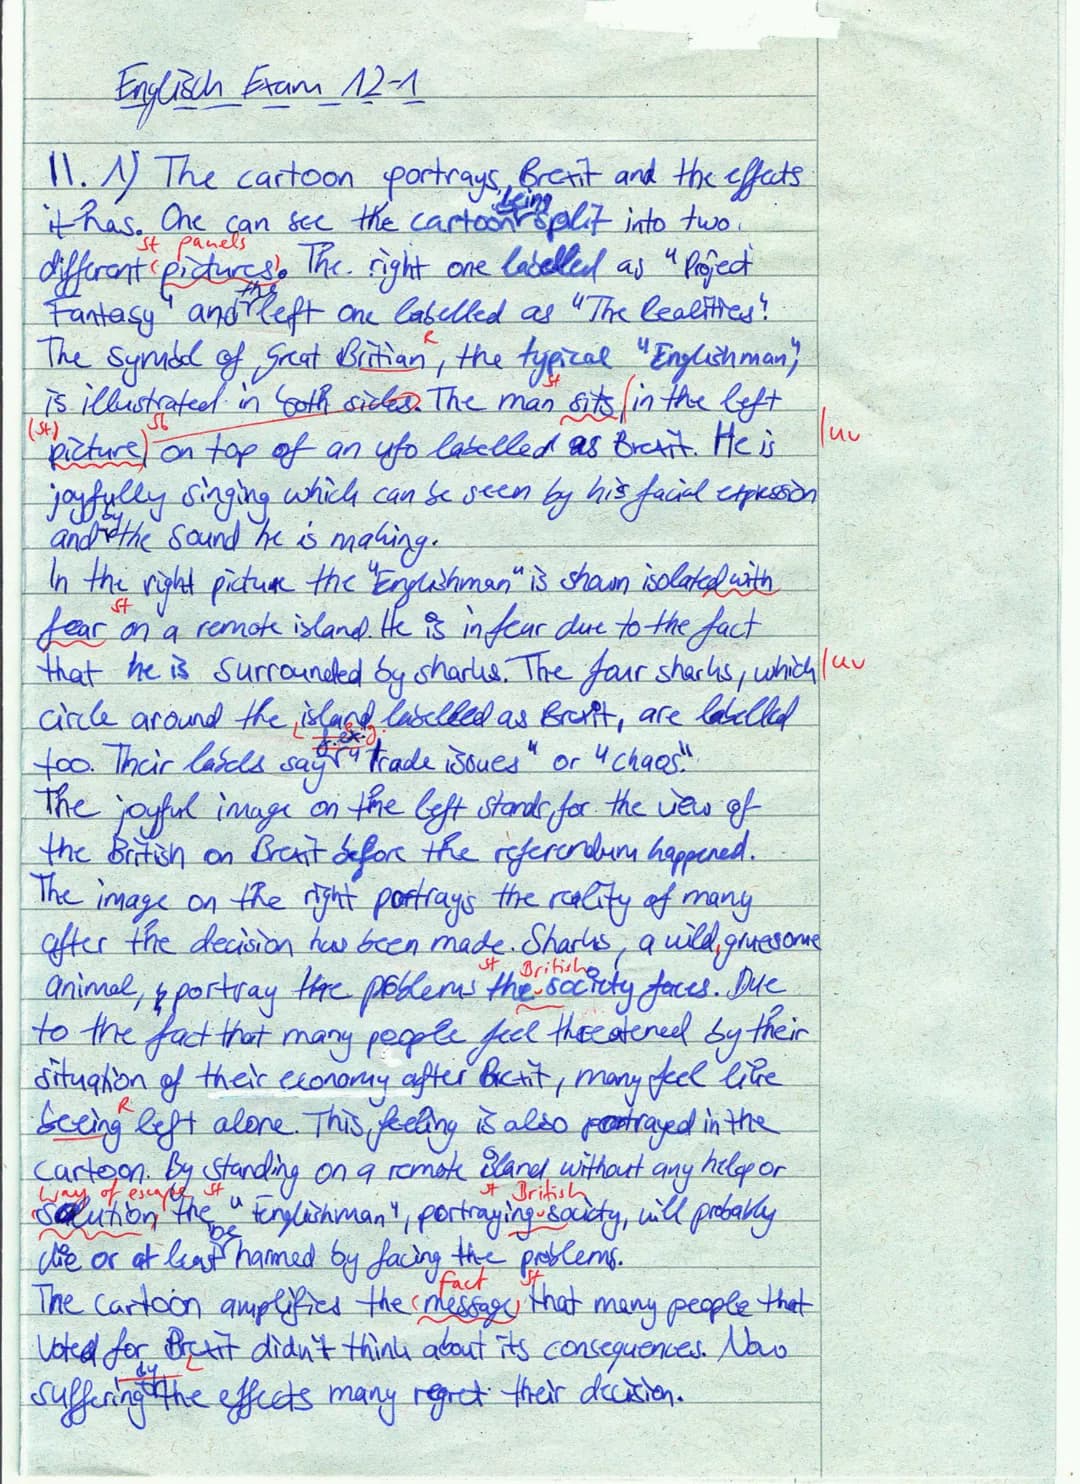 Englisch Exam 12-1
II. 1) The cartoon portrays Brexit and the effects
it has. One can see the cartoon being split into two
st panels
different (pictures). The right one labelled as "Project
Fantasy" and the left one labelled as "The Realities".
R
The symbol of Great Britian, the typical "Englishman",
st
is illustrated in both sides. The man sits in the left
(st) Sb
picture) on top of an ufo labelled as Brexit. He is | uv
joyfully singing which can be seen by his facial expression
and by the sound he is making.
In the right picture the "Englishman" is shown isolated with
st
fear on a remote island. He is in fear due to the fact
that he is surrounded by sharks. The four sharks, which | uv
circle around the island labelled as Brexit, are labelled
L
too. Their labels say f.ex. "trade issues" or "chaos".
The joyful image on the left stands for the view of
the British on Brexit before the referendum happened.
The image on the right portrays the reality of many
after the decision has been made. Sharks, a wild, gruesome
st British
animal, portray the problems the society faces. Due
to the fact that many people feel threatened by their
situation of their economy after Brexit, many feel like
R
beeing left alone. This feeling is also portrayed in the
cartoon. By standing on a remote island without any help or
way of escape st st British
solution, the "Englishman", portraying society, will probably
die or at least be harmed by facing the problems.
fact st
The cartoon amplifies the (message) that many people that
voted for Brexit didn't think about its consequences. Now
L
suffering by the effects many regret their decision.